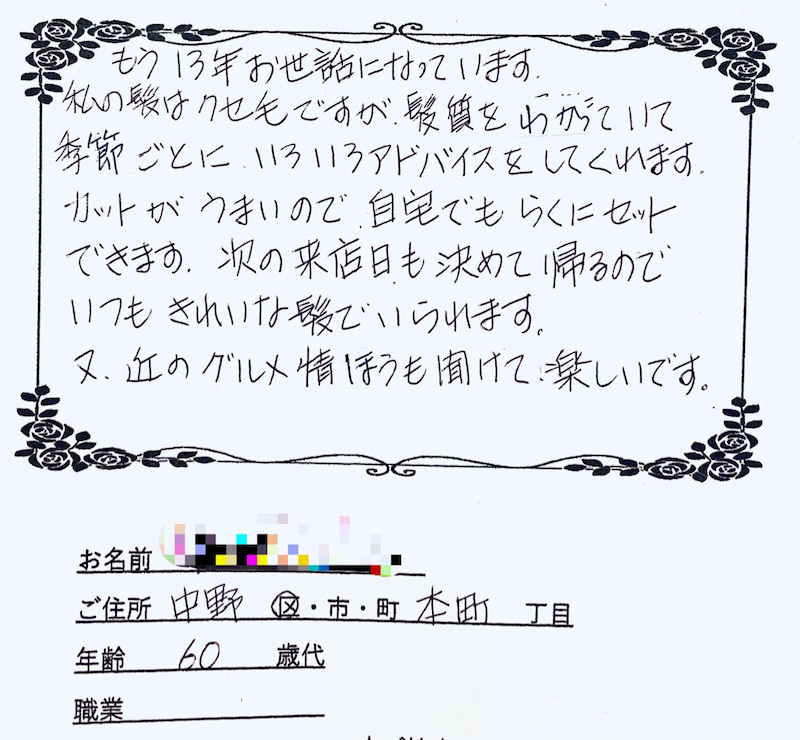 もう13年お世話になっています.
私の髪はクセ毛ですが、髪質をわかっていて
季節ごとに、いろいろアドバイスをしてくれます.
カットがうまいので、自宅でもらくにセット
できます. 次の来店日も決めて帰るので
いつもきれいな髪でいられます。
又、近のグルメ情ほうも聞けて、楽しいです。
お名前
ご住所 中野 区・市・町 本町 丁目
年齢 60 歳代
職業